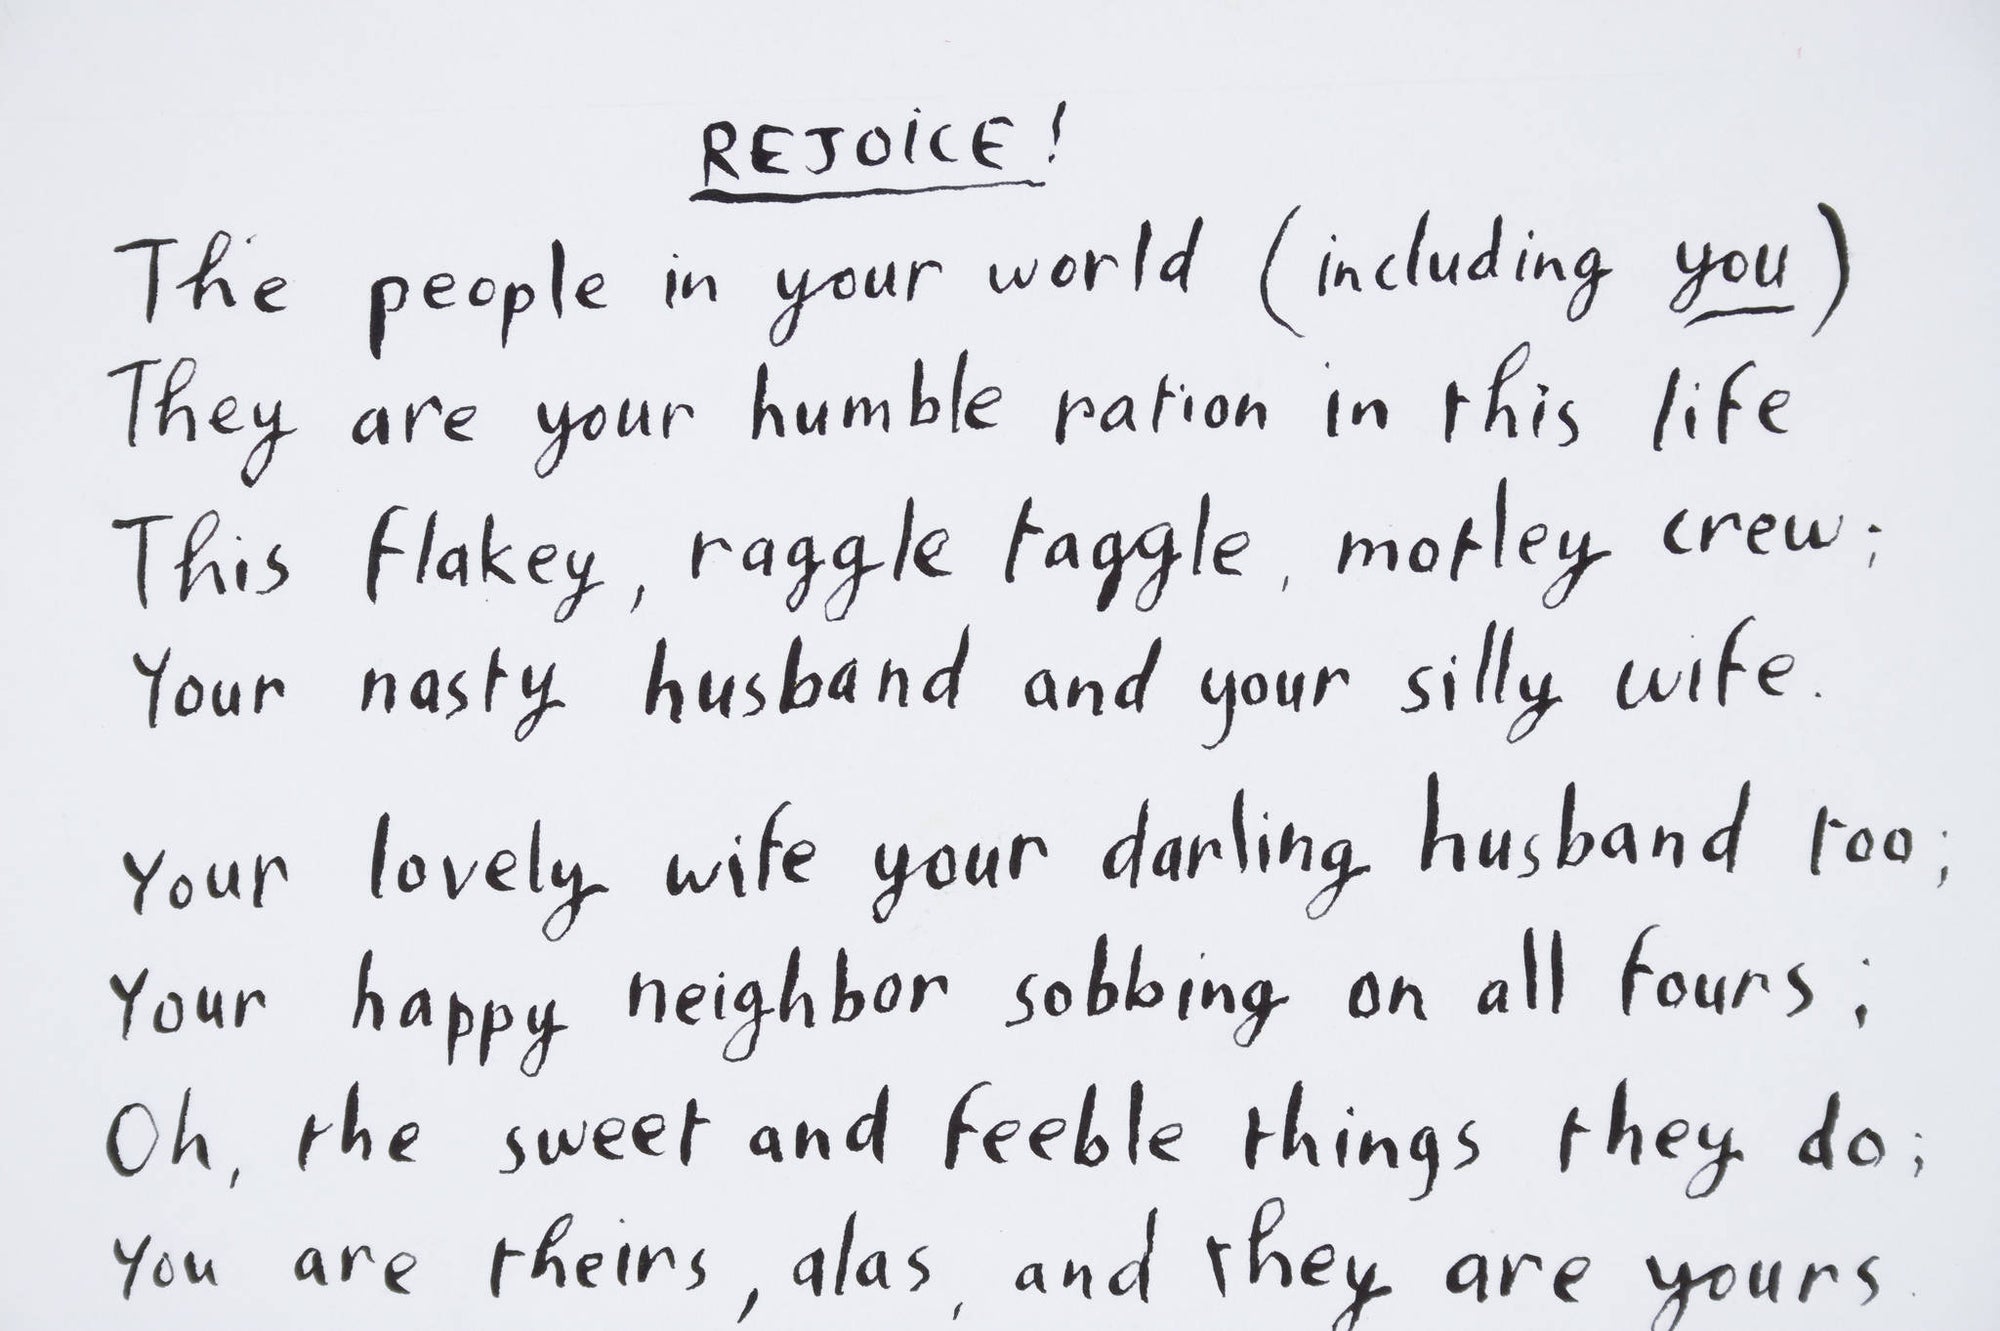 REJOiCE!
The people in your world (including you)
They are your humble ration in this life
This flakey, raggle taggle, motley crew;
Your nasty husband and your silly wife.
Your lovely wife your darling husband too;
Your happy neighbor sobbing on all fours;
Oh, the sweet and feeble things they do;
You are theirs, alas, and they are yours.